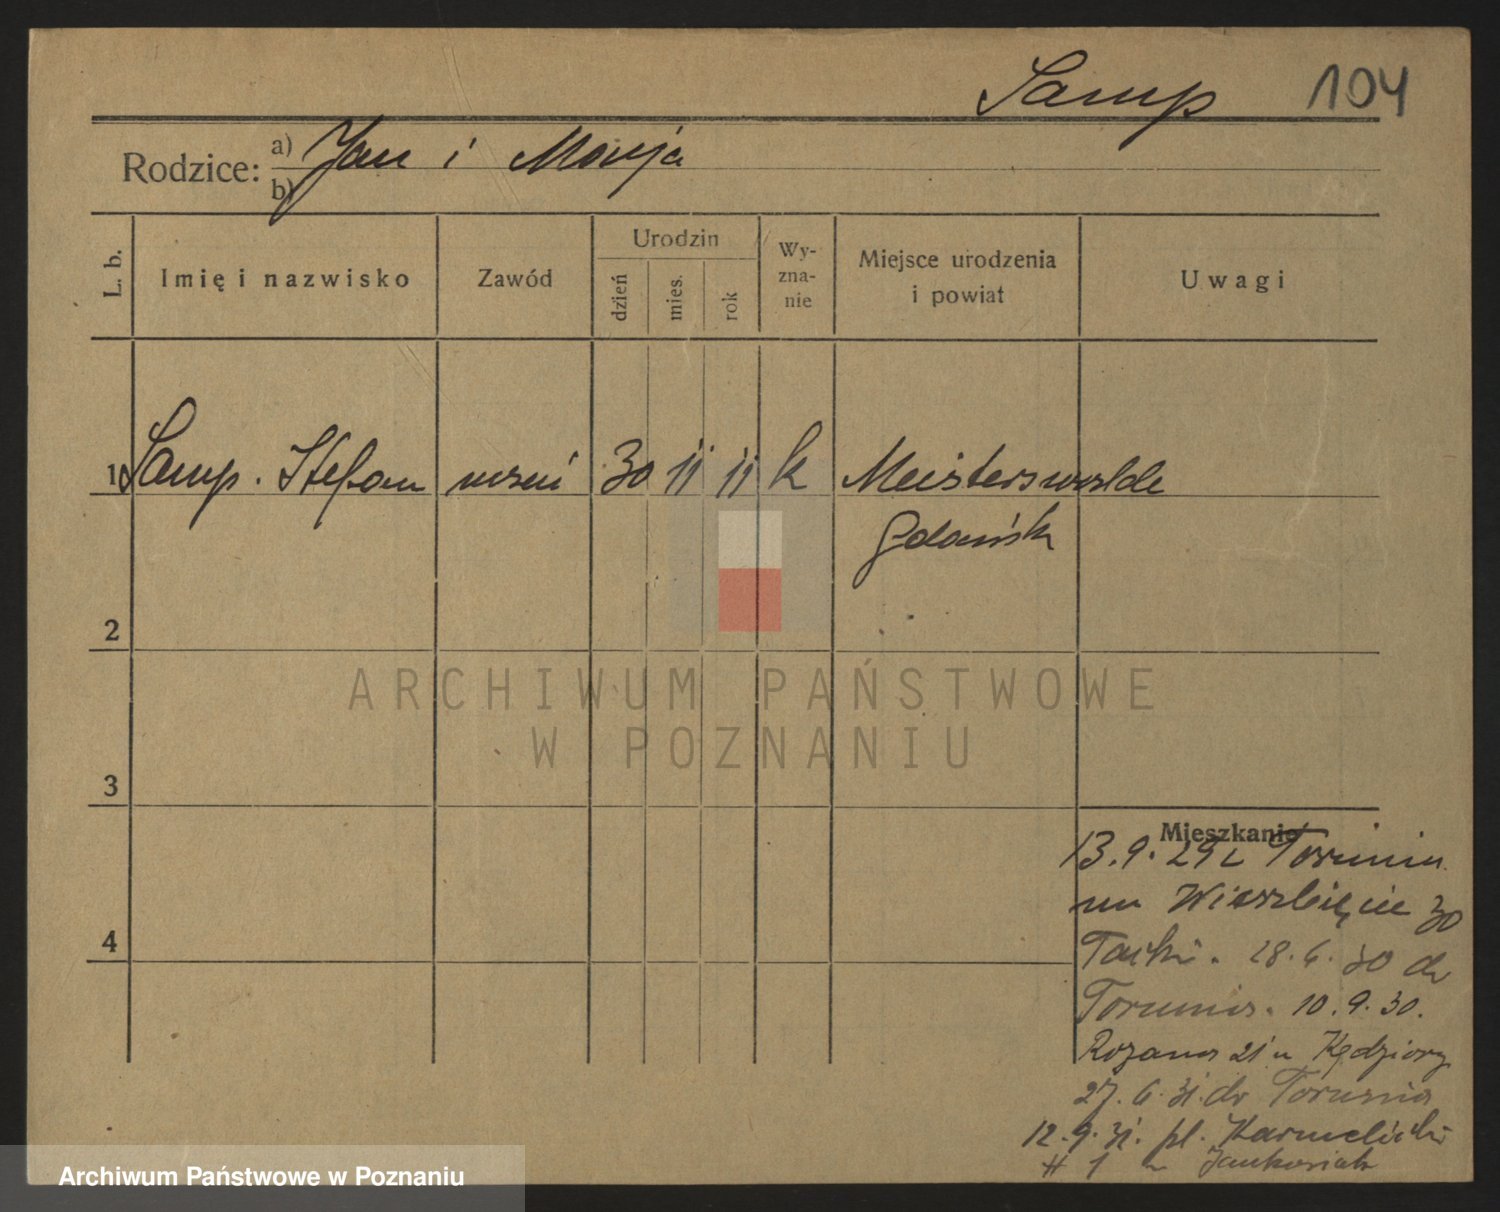 Samp 104
Rodzice: a) Jan i Marja
b)
L. b.
Imię i nazwisko
Zawód
Urodzin
dzień
mies.
rok
Wy-
zna-
nie
Miejsce urodzenia
i powiat
Uwagi
1 Samp. Stefan uczeń 30 11 11 k Meisterswalde
Gdańsk
2
ARCHIWUM PAŃSTWOWE
W POZNANIU
3
Mieszkanie
13.9.29 z Torunia
Wierzbięcie 30
28.6.30 do
Torunia. 10.9.30.
Różana 21 u Kędziory
27.6.31. do Torunia
4
12.9.31. pl. Karmelicki
# 1 Jankowiak
Archiwum Państwowe w Poznaniu